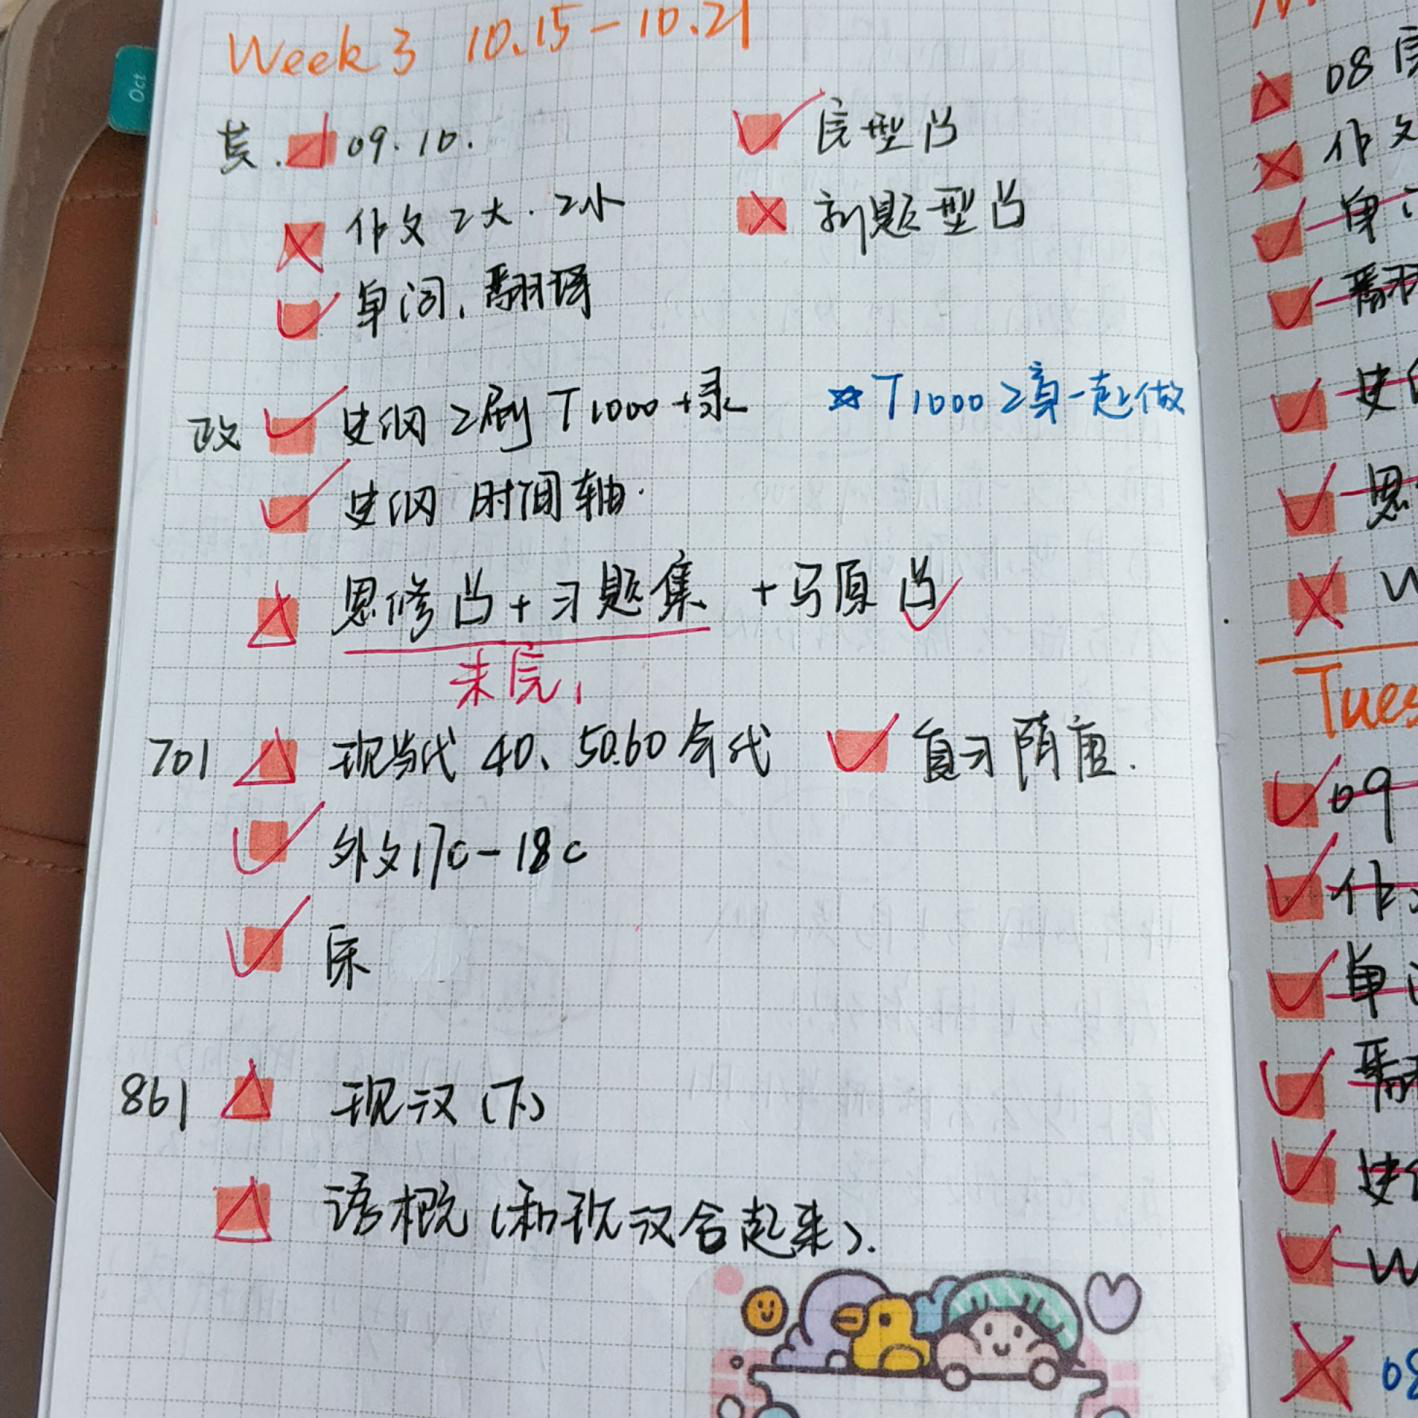 Week 3 10.15-10.21
Oct
英. 09.10.
完型凸
作文2大.2小
新题型凸
单词,翻译
政 史纲 2刷 T1000+录
☆T1000 2真一起做
史纲 时间轴.
思修凸+习题集 +马原凸
未完,
701 现当代 40、50.60年代
复习隋唐.
外文17c-18c
宋
861 现汉(下)
语概(和现汉合起来).
08
作文
单
翻
史
思
W
Tues
09
作
单
翻
史
W
08